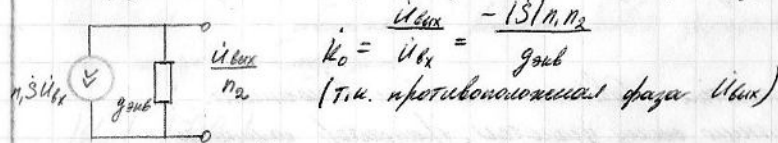 n₁ṠU̇вх
gэкв
U̇вых / n₂
K̇₀ = U̇вых / U̇вх = -|Ṡ|n₁n₂ / gэкв
(т.к. противоположная фаза U̇вых)